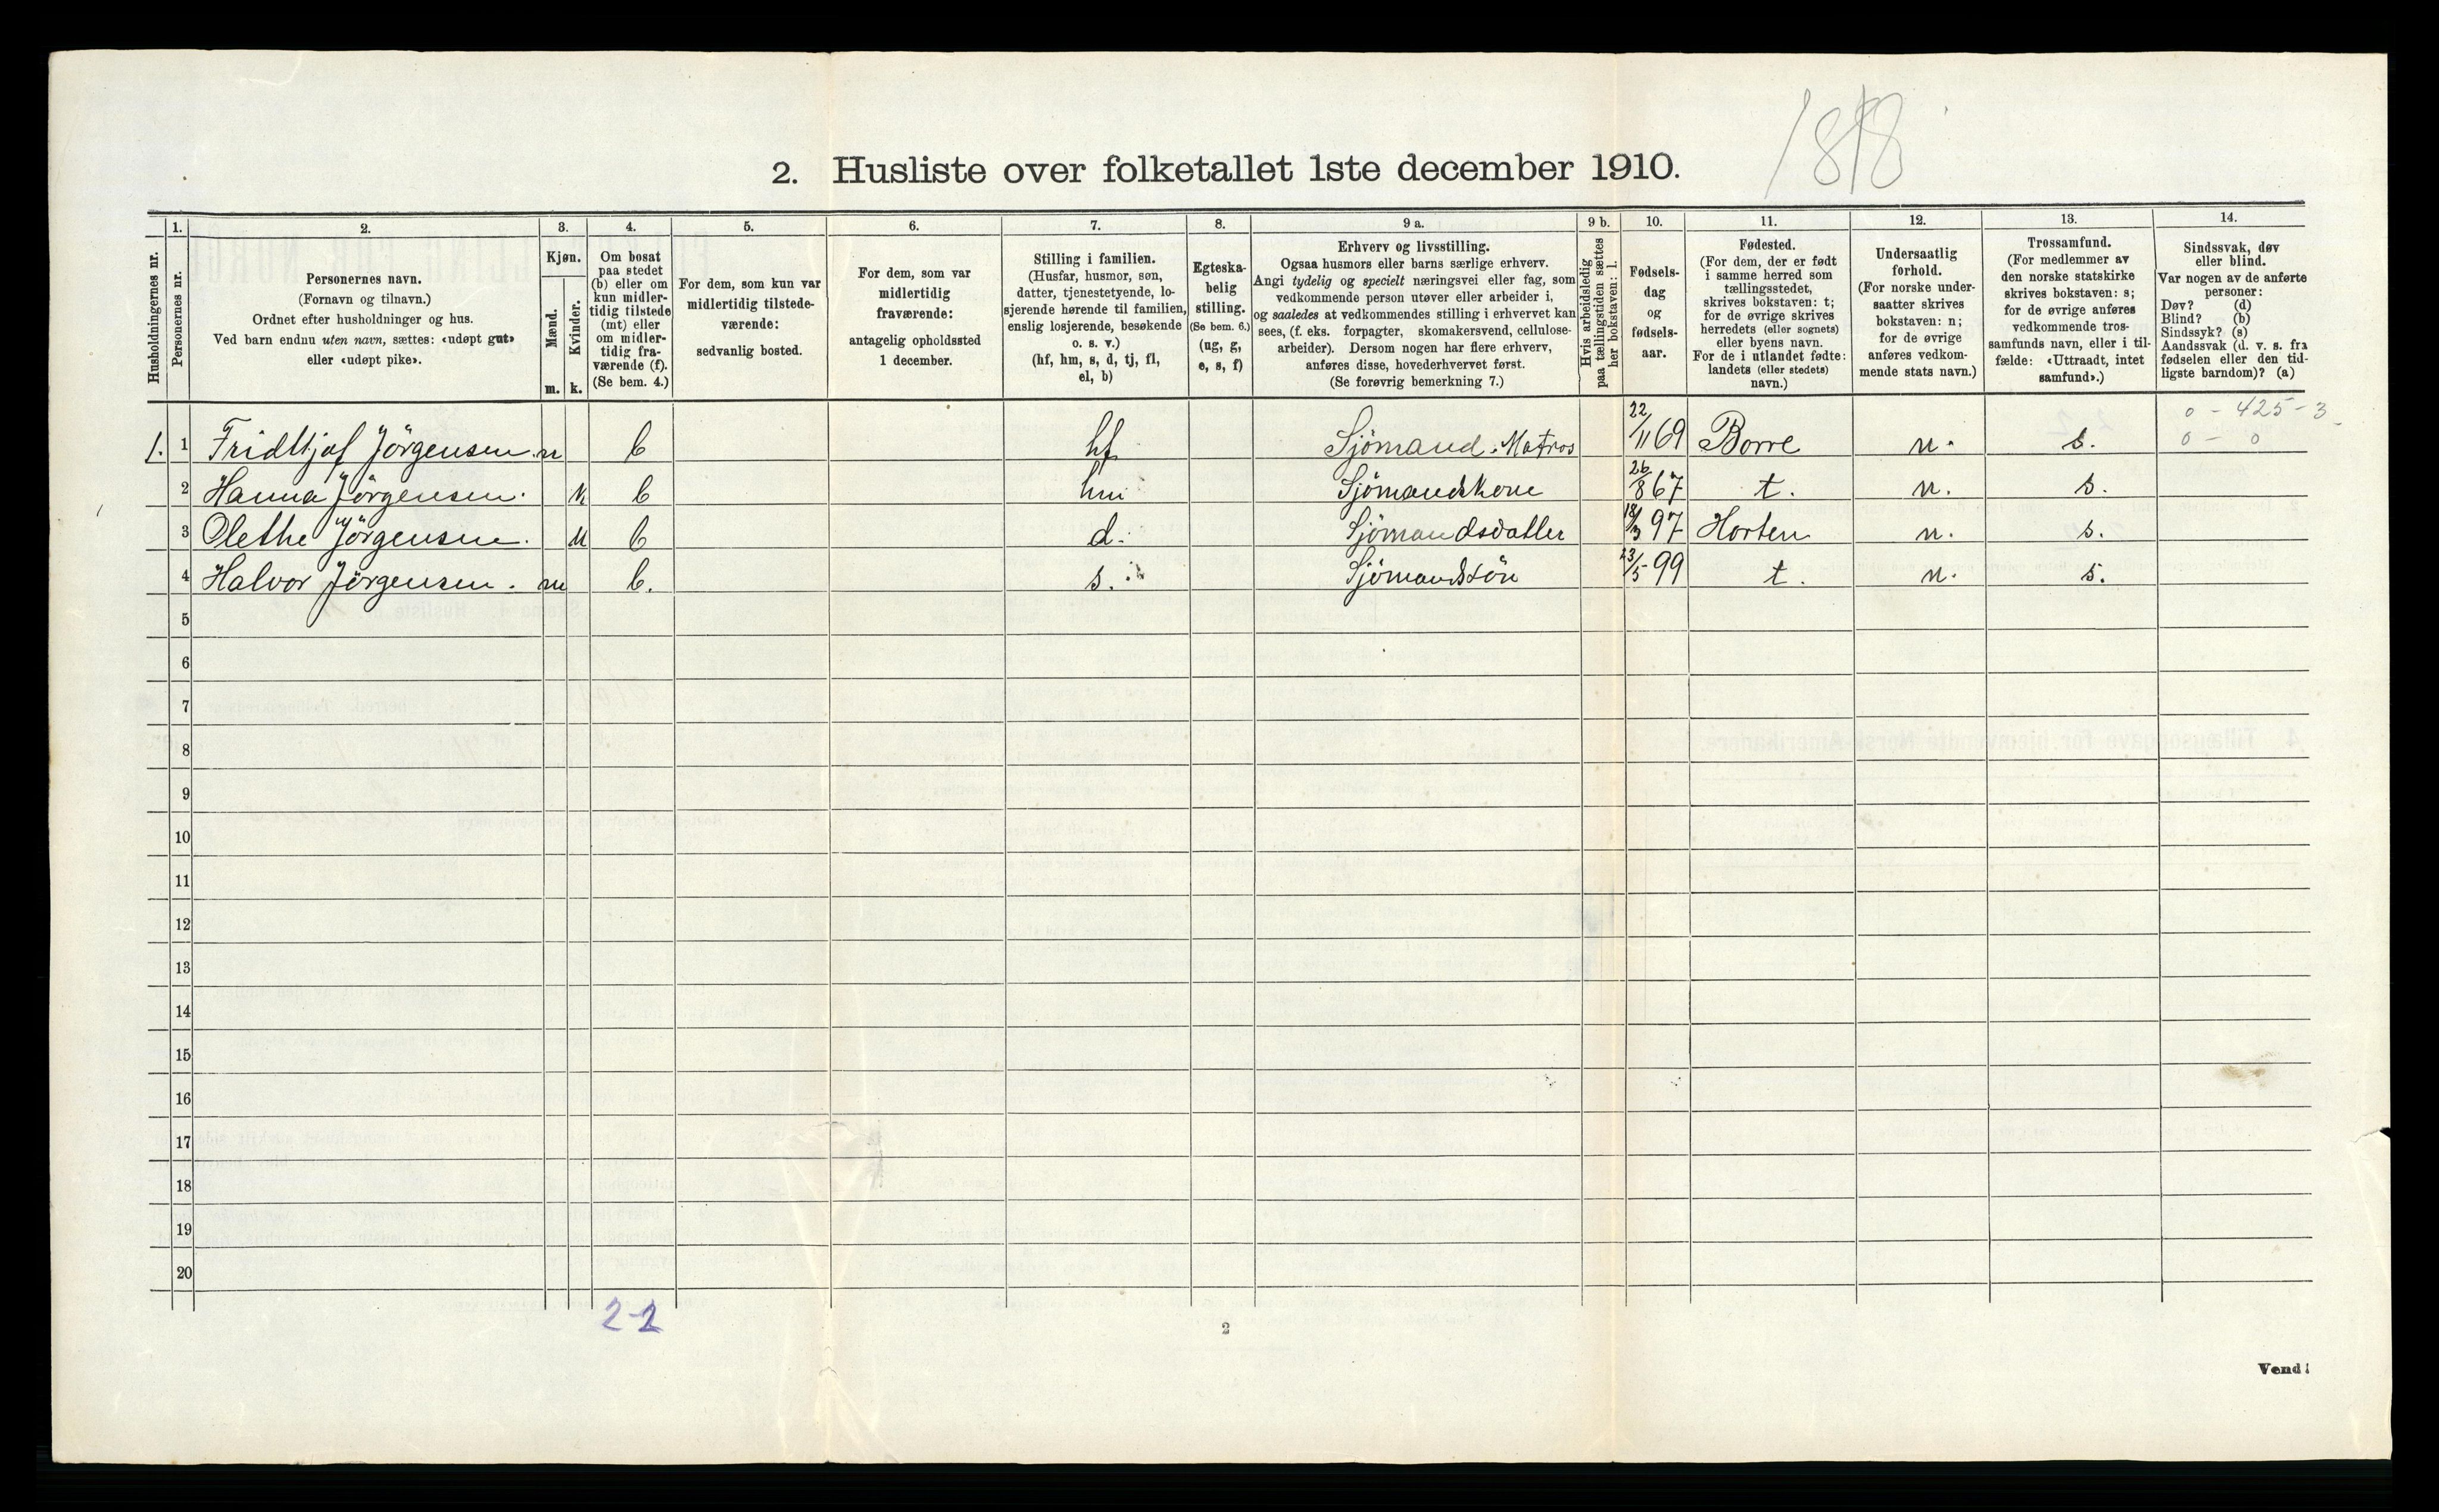 1818
2. Husliste over folketallet 1ste december 1910.
Husholdningernes nr.
1.
Personernes nr.
2.
Personernes navn.
(Fornavn og tilnavn.)
Ordnet efter husholdninger og hus.
Ved barn endnu uten navn, sættes: «udøpt gut»
eller «udøpt pike».
3.
Kjøn.
Mænd.
m.
Kvinder.
k.
4.
Om bosat
paa stedet
(b) eller om
kun midler-
tidig tilstede
(mt) eller
om midler-
tidig fra-
værende (f).
(Se bem. 4.)
5.
For dem, som kun var
midlertidig tilstede-
værende:
sedvanlig bosted.
6.
For dem, som var
midlertidig
fraværende:
antagelig opholdssted
1 december.
7.
Stilling i familien.
(Husfar, husmor, søn,
datter, tjenestetyende, lo-
sjerende hørende til familien,
enslig losjerende, besøkende
o. s. v.)
(hf, hm, s, d, tj, fl,
el, b)
8.
Egteska-
belig
stilling.
(Se bem. 6.)
(ug, g,
e, s, f)
9 a.
Erhverv og livsstilling.
Ogsaa husmors eller barns særlige erhverv.
Angi tydelig og specielt næringsvei eller fag, som
vedkommende person utøver eller arbeider i,
og saaledes at vedkommendes stilling i erhvervet kan
sees, (f. eks. forpagter, skomakersvend, cellulose-
arbeider). Dersom nogen har flere erhverv,
anføres disse, hovederhvervet først.
(Se forøvrig bemerkning 7.)
9 b.
Hvis arbeidsledig
paa tællingstiden sættes
her bokstaven: l.
10.
Fødsels-
dag
og
fødsels-
aar.
11.
Fødested.
(For dem, der er født
i samme herred som
tællingsstedet,
skrives bokstaven: t;
for de øvrige skrives
herredets (eller sognets)
eller byens navn.
For de i utlandet fødte:
landets (eller stedets)
navn.)
12.
Undersaatlig
forhold.
(For norske under-
saatter skrives
bokstaven: n;
for de øvrige
anføres vedkom-
mende stats navn.)
13.
Trossamfund.
(For medlemmer av
den norske statskirke
skrives bokstaven: s;
for de øvrige anføres
vedkommende tros-
samfunds navn, eller i til-
fælde: «Uttraadt, intet
samfund».)
14.
Sindssvak, døv
eller blind.
Var nogen av de anførte
personer:
Døv? (d)
Blind? (b)
Sindssyk? (s)
Aandssvak (d. v. s. fra
fødselen eller den tid-
ligste barndom)? (a)
0 - 425 - 3
0 - 0
1. 1 Fridthjof Jörgensen. m b hf Sjömand. Matros 22/11 69 Borre n. s.
2 Hanna Jörgensen. k b hm Sjömandskone 26/8 67 t. n. s.
3 Olethe Jörgensen. k b d. Sjömandsdatter 18/3 97 Horten n. s.
4 Halvor Jörgensen. m b. s. Sjömandssön 23/5 99 t. n. s.
5
6
7
8
9
10
11
12
13
14
15
16
17
18
19
20
2-2
2
Vend!